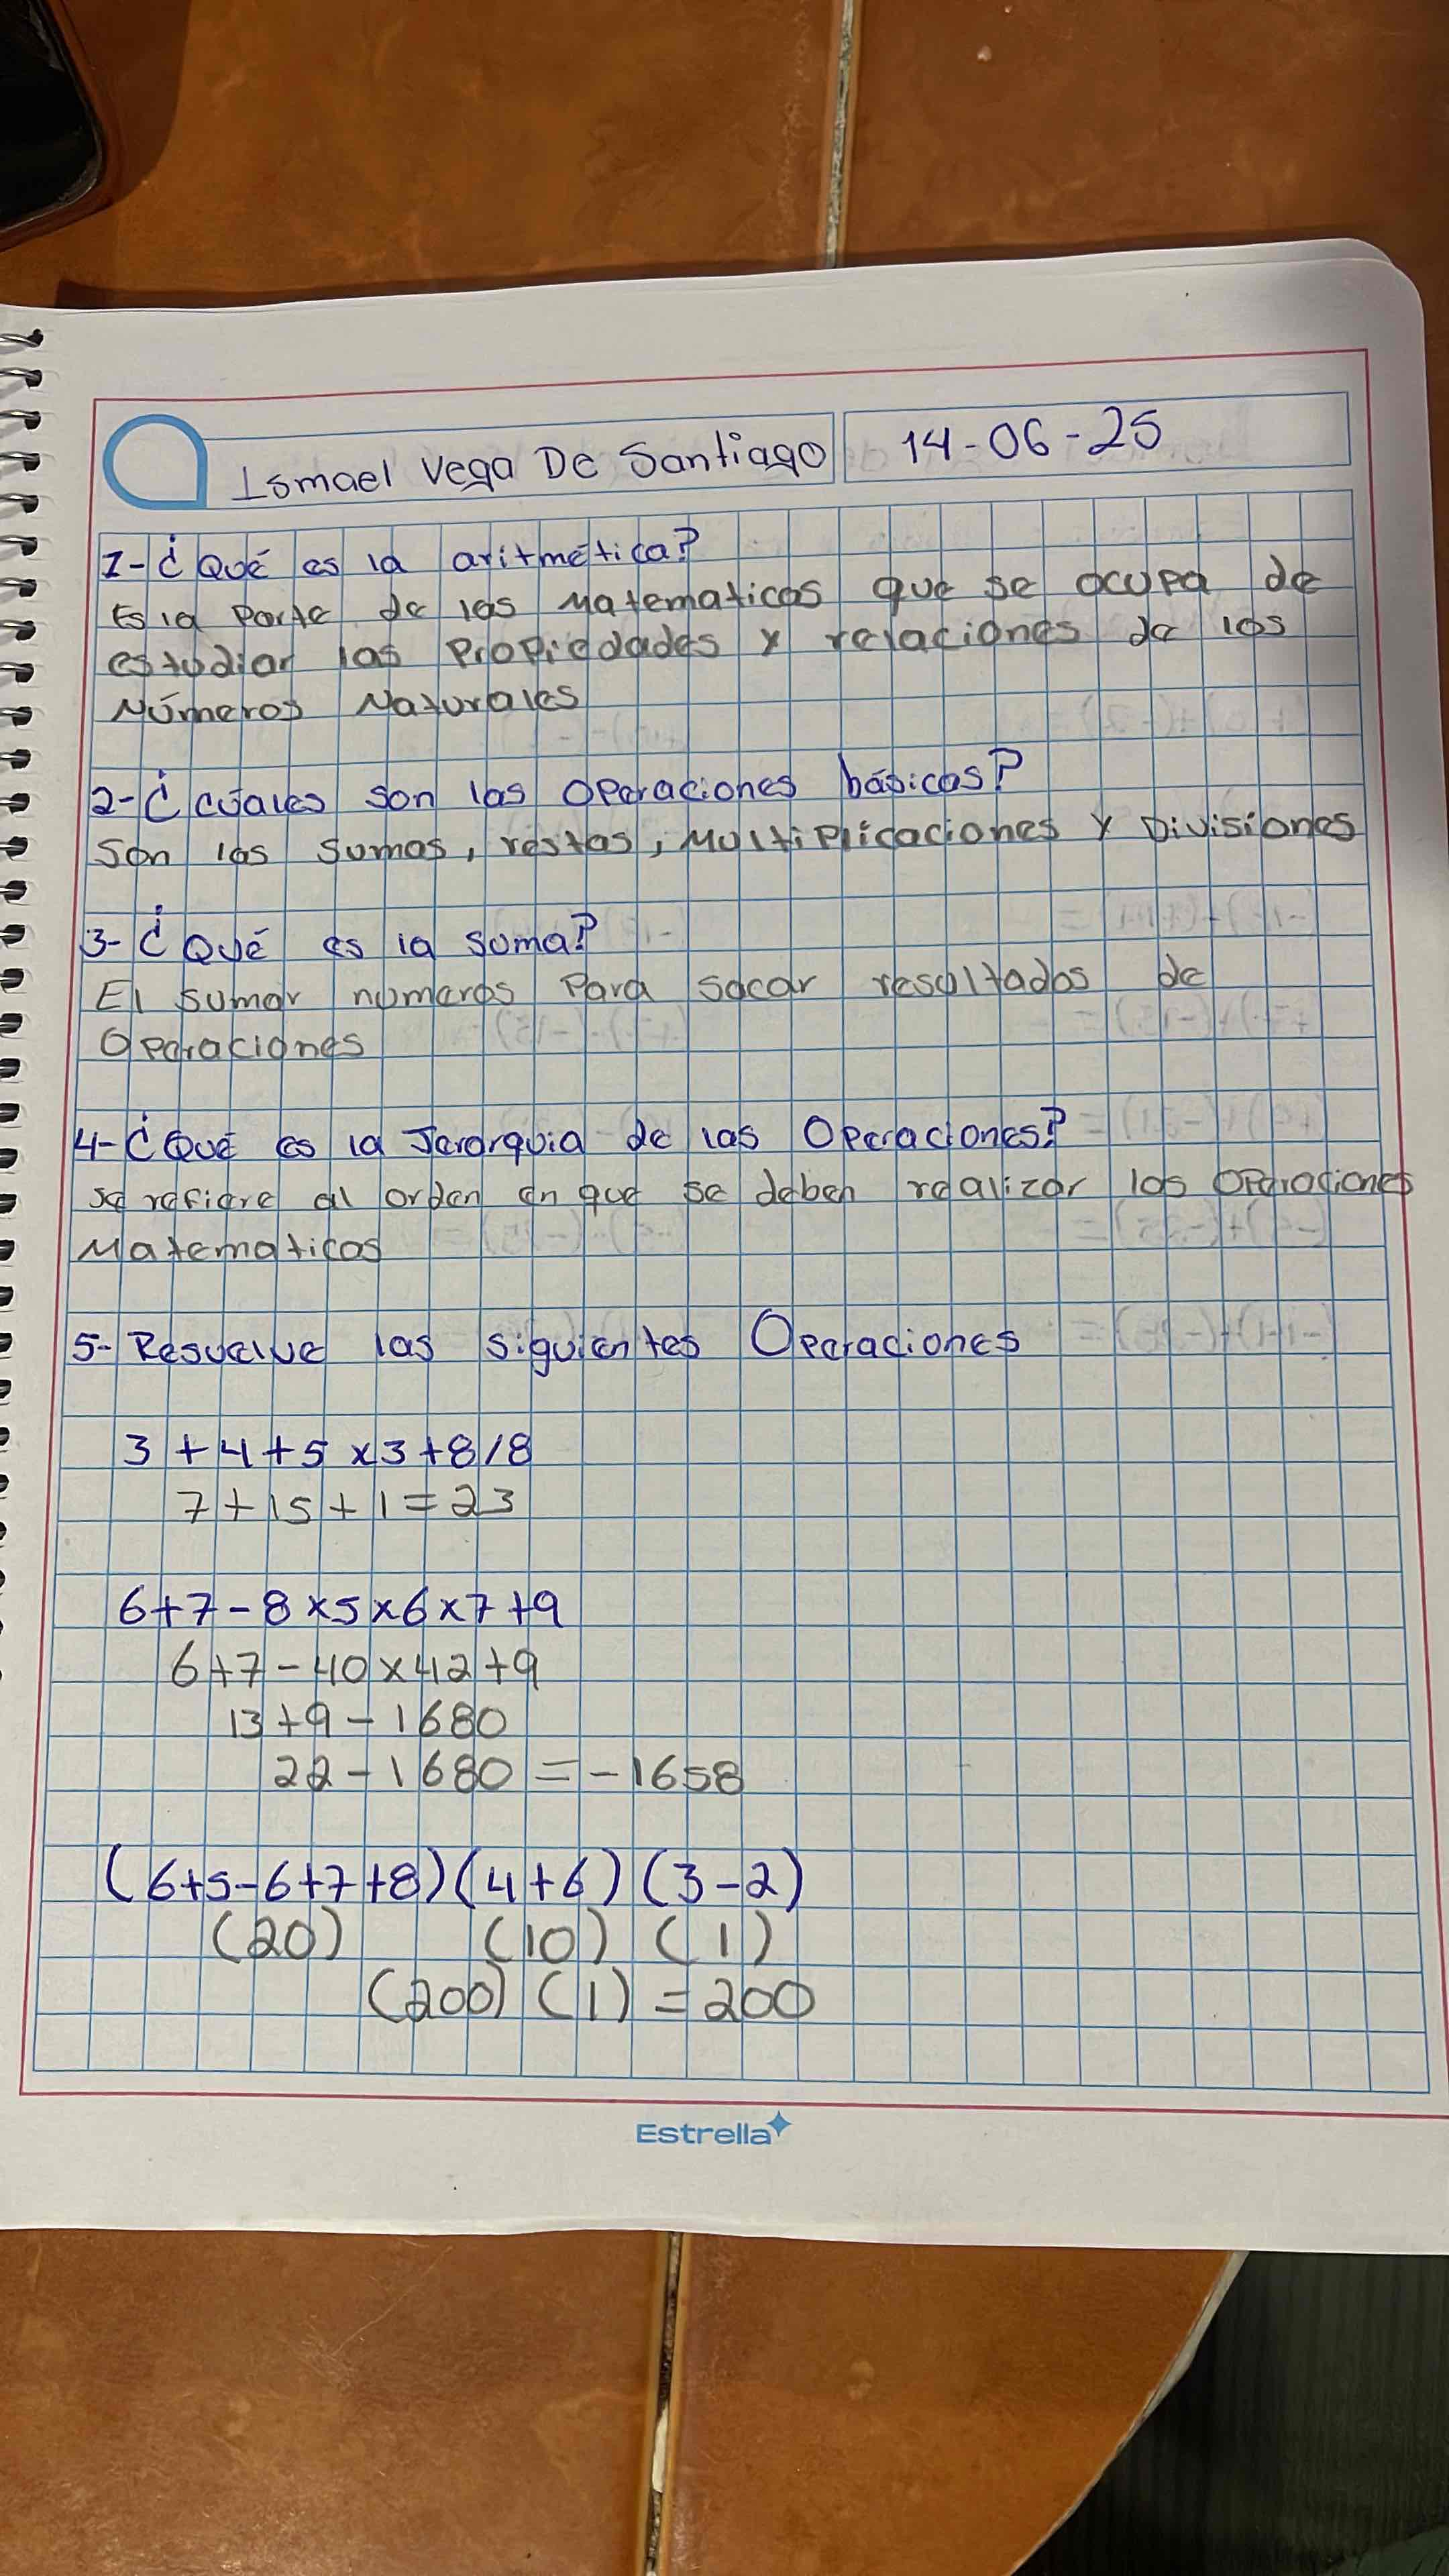 Ismael Vega De Santiago
14-06-25
1-¿Qué es la aritmética?
Es la Parte de las Matematicas que se ocupa de
estudiar las Propiedades y relaciones de los
Números Naturales
2-¿Cúales son las Operaciones básicas?
Son las sumas, restas, Multiplicaciones y Divisiones
3-¿Qué es la suma?
El sumar números Para sacar resultados de
Operaciones
4-¿Qué es la Jerarquia de las Operaciones?
se refiere al orden en que se deben realizar las Operaciones
Matematicas
5-Resuelve las siguientes Operaciones
3+4+5x3+8/8
7+15+1=23
6+7-8x5x6x7+9
6+7-40x42+9
13+9-1680
22-1680=-1658
(6+5-6+7+8)(4+6)(3-2)
(20) (10) (1)
(200)(1)=200
Estrella